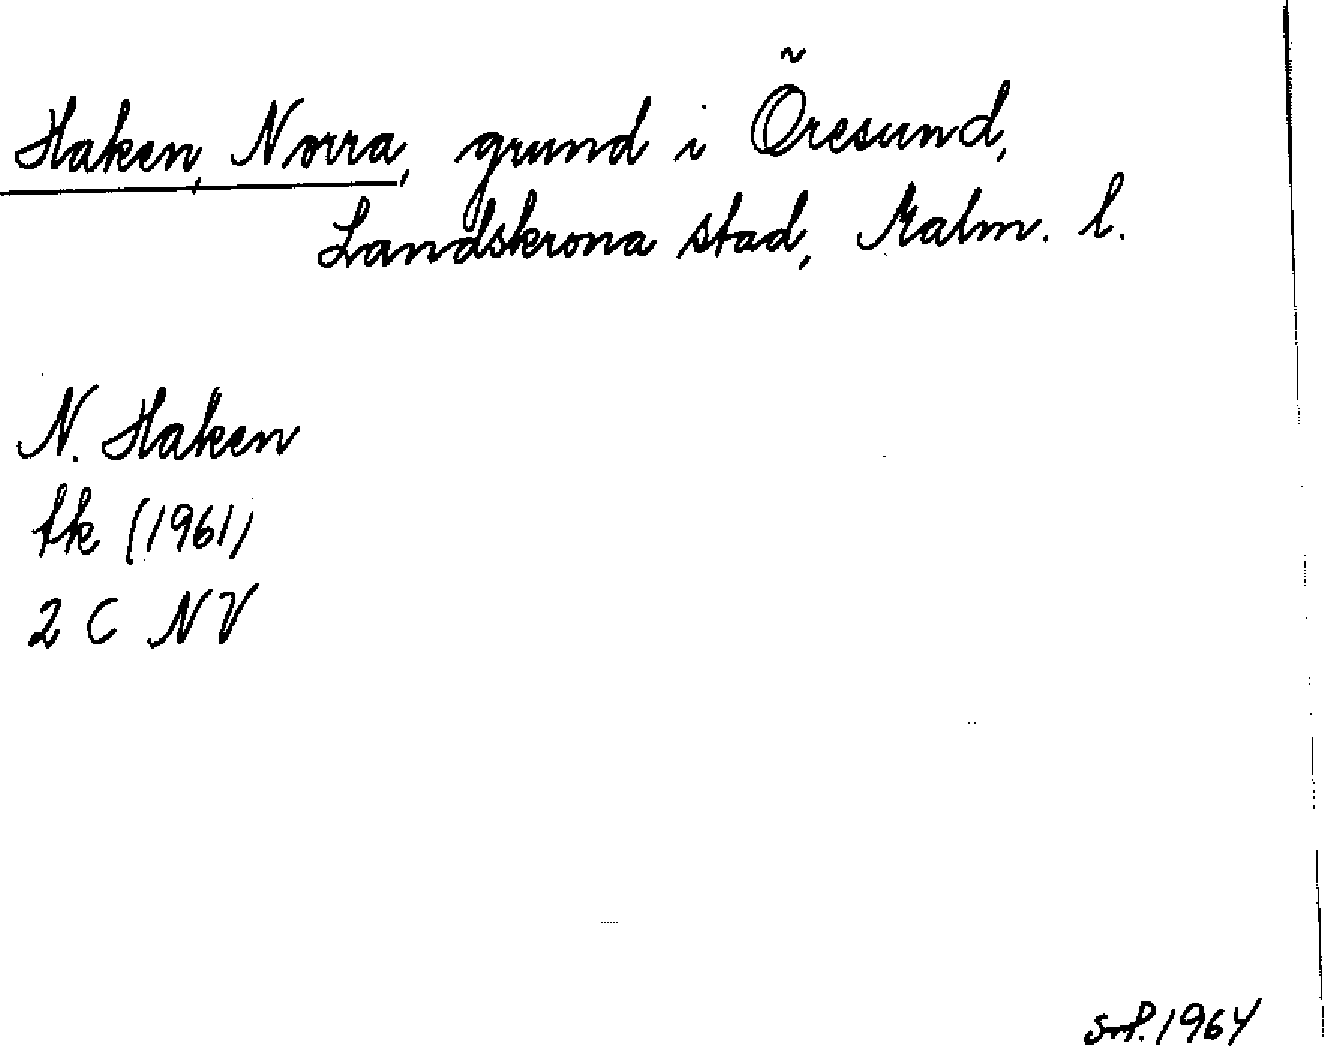 Haken, Norra, grund i Öresund,
Landskrona stad, Malm. l.
N. Haken
fk (1961)
2 C NV
1964